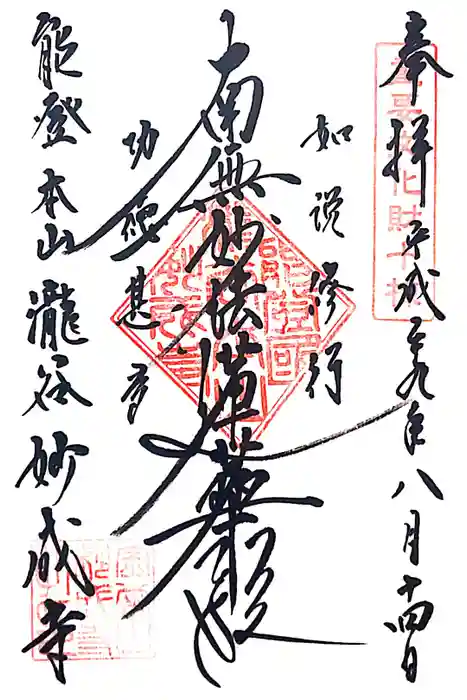 奉拝 平成二十九年八月十四日
重要文化財十棟
如説修行
南無妙法蓮華経
功徳甚多
能登本山 瀧谷 妙成寺